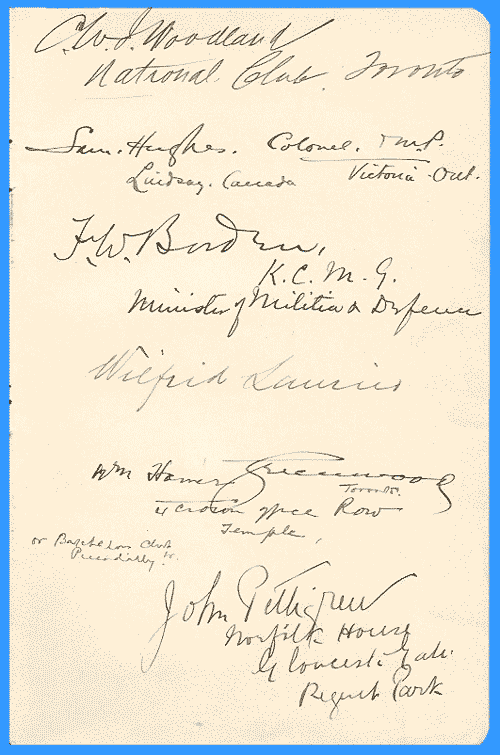 C.W.I. Woodland
National Club. Toronto
Sam. Hughes. Colonel. M.P.
Lindsay. Canada Victoria Ont.
F.W. Borden,
K.C.M.G.
Minister of Militia & Defence
Wilfrid Laurier
Wm Hamar Greenwood
Toronto.
Row
Temple,
or Bachelors Club
Piccadilly W.
John Pettigrew
Norfolk House
Gloucester Gate.
Regent Park